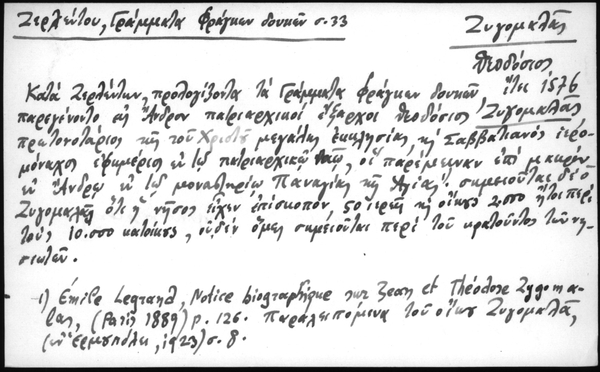 Ζερλέντου, Γράμματα Φράγκων δουκῶν σ. 33
Ζυγομαλᾶς
Θεοδόσιος
Κατά Ζερλέντην, προλογίζοντα τά Γράμματα φράγκων δουκῶν ἔτει 1576
παρεγένοντο εἰς Ἄνδρον πατριαρχικοί ἔξαρχοι Θεοδόσιος Ζυγομαλᾶς
πρωτονοτάριος τῆς τοῦ Χριστοῦ μεγάλης ἐκκλησίας, κ Σαββατιανός ἱερο-
μόναχος ἐφημέριος ἐν τῷ πατριαρχικῷ ναῷ, οἵ παρέμειναν ἐπί μακρόν
ἐν Ἄνδρῳ ἐν τῷ μοναστηρίῳ Παναγίας τῆς Ἁγίας¹. σημειοῦται δέ ὁ
Ζυγομαλᾶς ὅτι ἡ νῆσος εἶχεν ἐπίσκοπον, 50 ἱερεῖς κ οἴκους 2.000 ἤτοι περί
τούς 10.000 κατοίκους, οὐδέν ὅμως σημειοῦται περί τοῦ κρατοῦντος τῶν νη-
σιωτῶν.
1) Émile Legrand, Notice biographique sur Jean et Théodose Zygoma-
las, (Paris 1889) p. 126. Παραλειπόμενα τοῦ οἴκου Ζυγομαλᾶ,
(ἐν Ἑρμουπόλει, 1923) σ. 8.